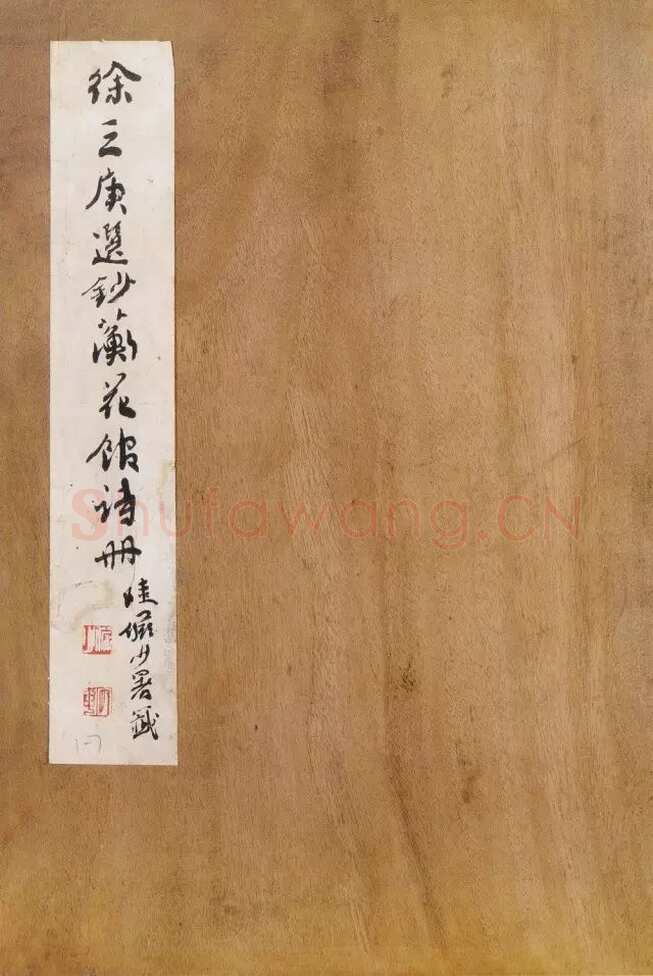 徐三庚選鈔蘅花館詩冊
署籤
Shufawang.CN